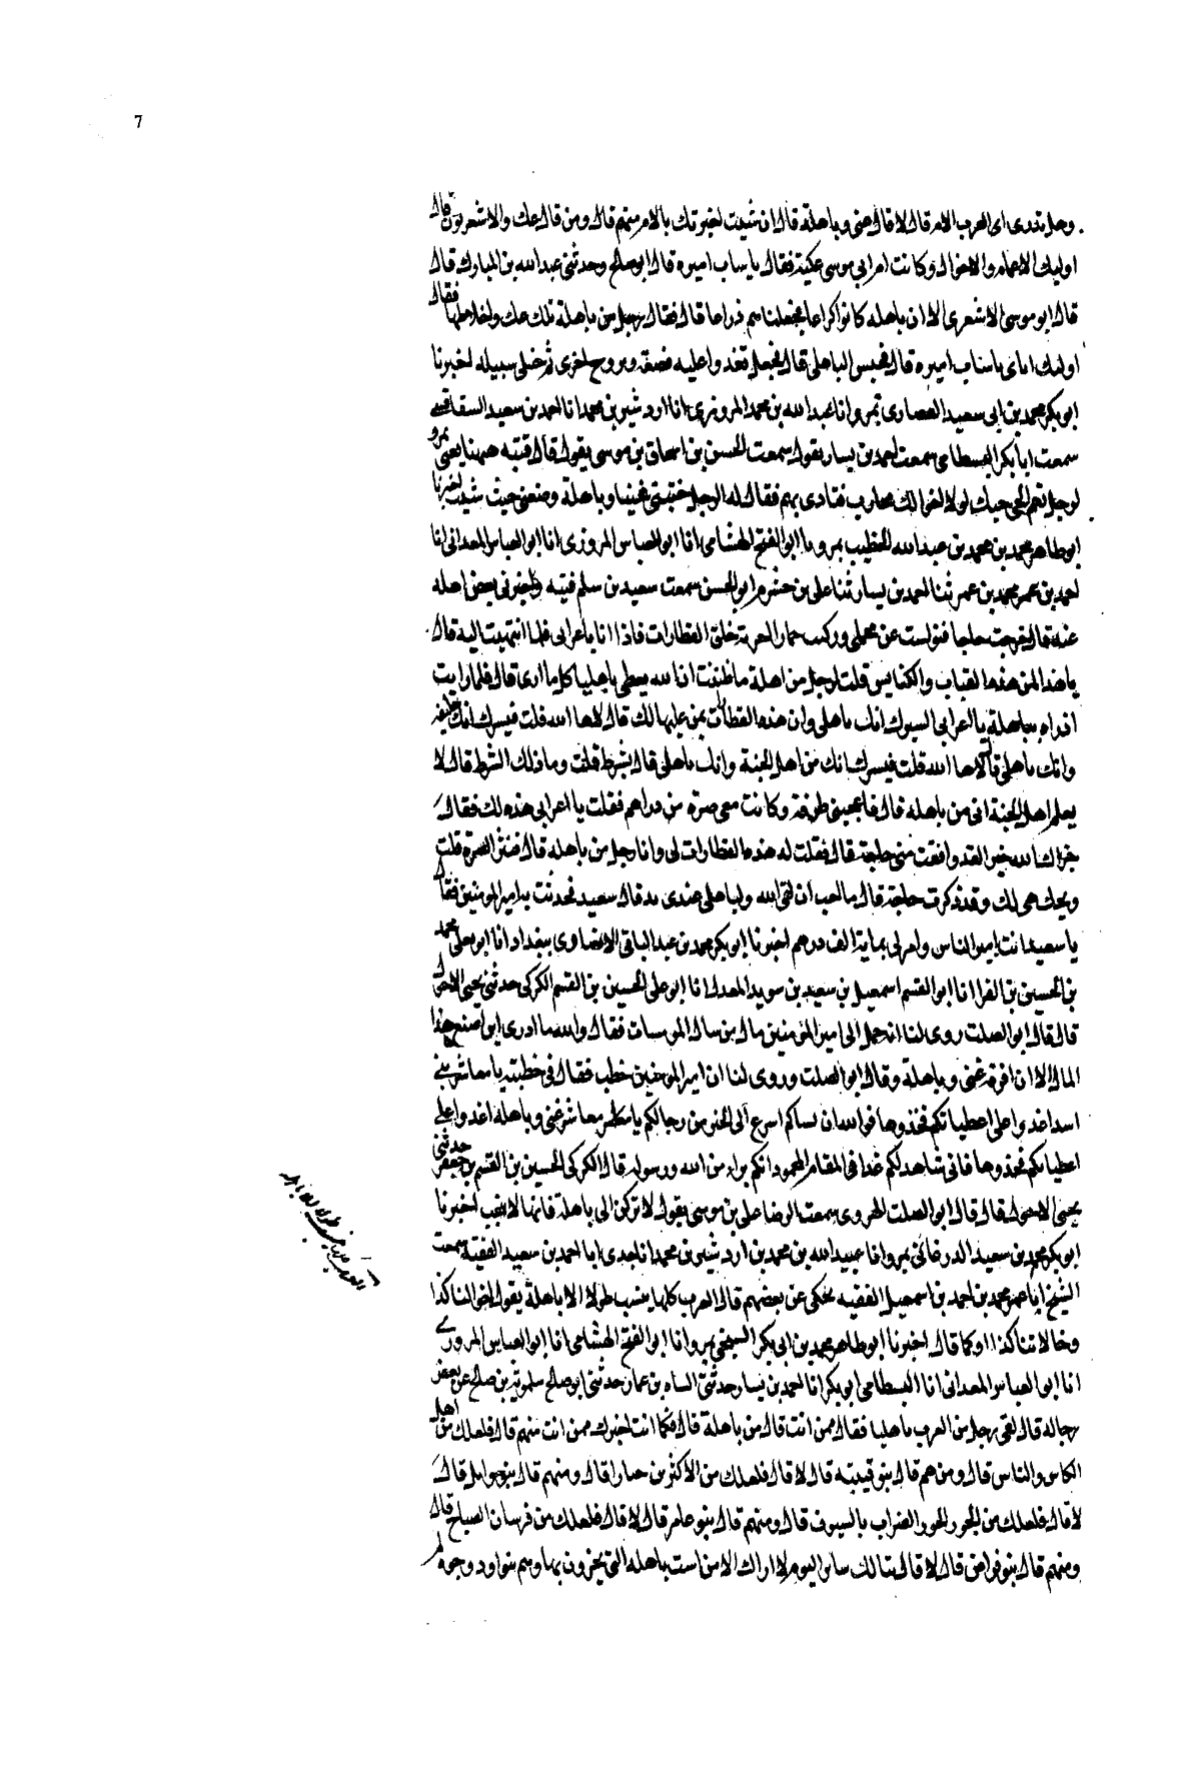 7
وهل تدرى اى العرب الام قال لا قال غنى وباهلة قال ان شيت لخبرتك بالام منهم قال ومن قال عك والاشعريون قال
اوليك الاعمام والاخوال وكانت ام ابى موسى عكية فقال يا ساب اميره قال ابو صالح وحدثنى عبد الله بن المبارك قال
قال ابو موسى الاشعرى الا ان باهله كانوا كراعا فجعلناهم ذراعا قال فقال رجل من باهلة تلك عك واخلاطها فقال
اولئك اباى يا ساب اميره قال فحبس الباهلى قال فجعل تغدوا عليه قصعة وتروح اخرى ثم خلى سبيله اخبرنا
ابو بكر محمد بن ابى سعيد الحصارى بمرو انا عبد الله بن محمد المروزى انا اردشير بن محمد انا احمد بن سعيد
سمعت ابا بكر البسطامى سمعت احمد بن يسار يقول سمعت الحسن بن اسحاق بن موسى يقول قال قتيبة ههنا يعنى بمرو
لرجل نعم الحى حيك لولا اخوالك محارب فنادى بهم فقال له الرجل جنبنى غنيا وباهلة وضعنى حيث شيت اخبرنا
ابو طاهر محمد بن محمد بن عبد الله الخطيب بمرو نا ابو الفتح الهشامى انا ابو العباس المروزى انا ابو العباس المعدانى انا
احمد بن عمر محمد بن عمر ثنا احمد بن يسار ثنا على بن خشرم ابو الحسن سمعت سعيد بن سلم قتيبه واخبرنى بعض اهله
عنه قال خرجت حاجا فنزلت عن محملى وركبت حمارا خلف القطارات فاذا انا باعرابى فلما انتهيت اليه قال
يا هذا لمن هذه القباب والكنايس قلت لرجل من باهلة قال ما ظننت ان الله يعطى باهليا كل ما ارى قال فلما رايت
ازدراه بباهلة يا اعرابى ايسرك انك باهلى وان هذه القطارات بمن عليها لك قال لا ها الله قلت فيسرك انك خليفه
وانك باهلى قال لا ها الله قلت فيسرك انك من اهل الجنة وانك باهلى قال بشرط قلت وما ذلك الشرط قال لا
يعلم اهل الجنة انى من باهله قال فاعجبنى ظرفه وكانت معى صرة من دراهم فقلت يا اعرابى هذه لك فقال
جزاك الله خيرا لقد وافقت منى حاجة قال فقلت له هذه القطارات لى وانا رجل من باهله قال فنثر الصرة قلت
ويحك هى لك وقد ذكرت حاجة قال ما احب ان القى الله ولباهلى عندى يد قال سعيد فحدثت به امير المومنين فقال
يا سعيد انت امير الناس وامر لى بماية الف درهم اخبرنا ابو بكر محمد بن عبد الباقى الانصارى ببغداد انا ابو يعلى محمد
بن الحسين بن الفرا انا ابو القسم اسمعيل بن سعيد بن سويد المعدل انا ابو على الحسين بن القسم الكوكبى حدثنى يحيى الاحول
قال قال ابو الصلت روى لنا انه حمل الى امير المومنين مال من مال المومسات فقال والله ما ادرى اين اصنع هذا
المال الا ان افرقه غنى وباهلة وقال ابو الصلت وروى لنا ان امير المومنين خطب فقال فى خطبته يا معاشر بنى
اسد اغدوا على اعطياتكم فخذوها فوالله ان نساكم اسرع الى الخير من رجالكم يا معاشر غنى وباهله اغدوا على
اعطياتكم فخذوها فانى شاهد لكم غدا فى المقام المحمود انكم براء من الله ورسوله قال الكوكبى الحسين بن القسم بن جعفر حدثنى
يحيى الاحول قال قال ابو الصلت الهروى سمعت الرضا على بن موسى يقول لا تركن الى باهلة فانها لا تنجب اخبرنا
ابو بكر محمد بن سعيد بمرو انا عبيد الله بن محمد بن اردشير بن محمد انا جدى انا احمد بن سعيد الفقيه سمعت
الشيخ ابا محمد بن احمد بن اسمعيل الفقيه يحكى عن بعضهم قال العرب كلها ينسب طولا الا باهلة يقول اخوالنا كذا
وخالاتنا كذا او كما قال اخبرنا ابو طاهر محمد بن ابى بكر السبخى بمرو انا ابو الفتح الهشامى انا ابو العباس المروزى
انا ابو العباس المعدانى انا البسطامى ابو بكر انا احمد بن يسار حدثنى بن عمار حدثنى ابو صالح سلمويه بن صالح عن بعض
رجاله قال لقى رجل من العرب باهليا فقال ممن انت قال من باهلة قال فكما انت اخبرك ممن انت منهم قال فلعلك من اهل
الكاس والناس قال ومن هم قال بنو قتيبة قال لا قال فلعلك من الاكثرين حمارا قال ومنهم قال بنو وايل قال
لا قال فلعلك من الضراب بالسيوف قال ومنهم قال بنو عامر قال لا قال فلعلك من فرسان الصباح قال
ومنهم قال بنو فراص قال لا قال تبا لك ساير اليوم لا اراك الا من است باهله التى يخرون بها وهم بنو اود وجوه